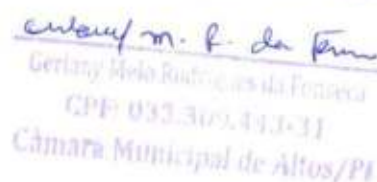 m. R. da
Gerlany Melo Rodrigues da Fonseca
CPF: 033.309.443-31
Câmara Municipal de Altos/PI